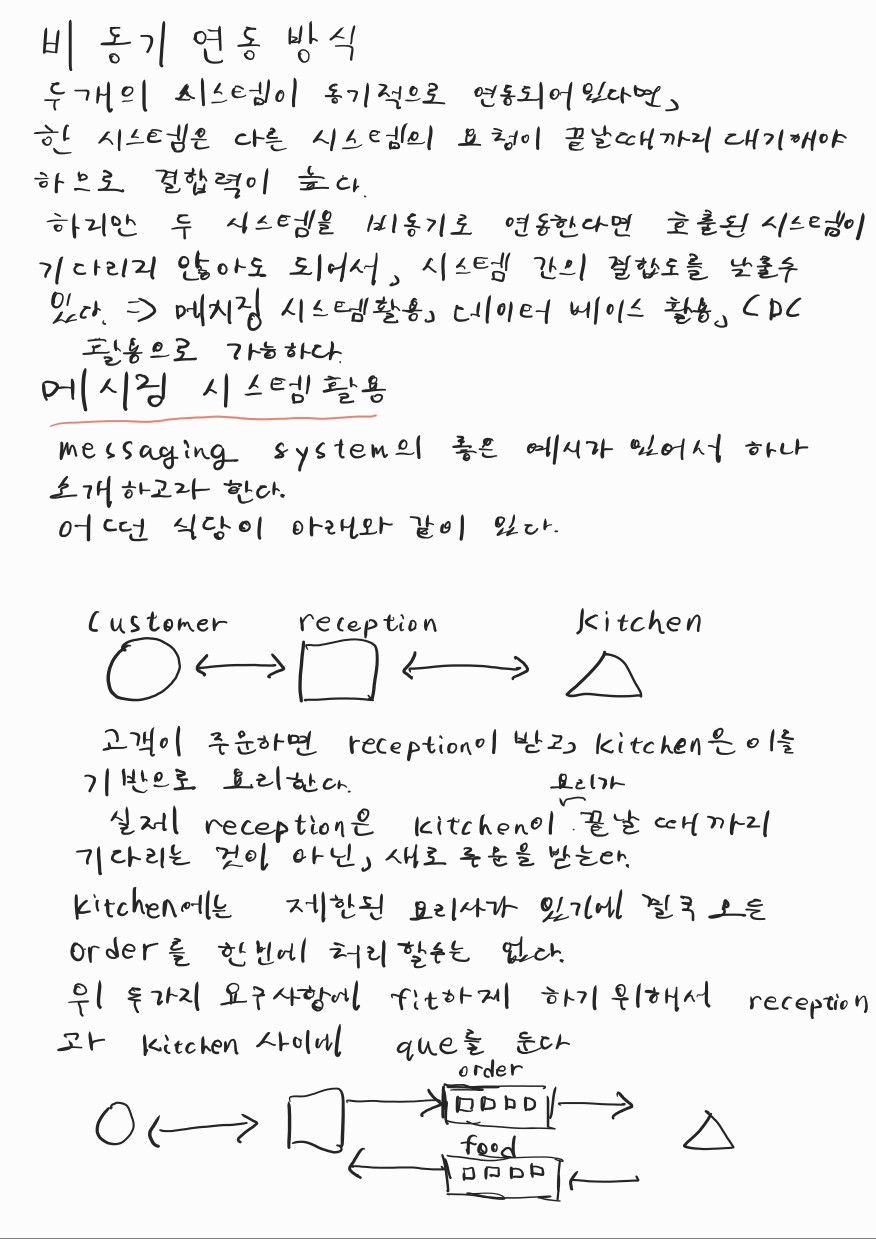 비 동기 연동 방식
두개의 시스템이 동기적으로 연동되어있다면,
한 시스템은 다른 시스템의 요청이 끝날때까지 대기해야
하므로 결합력이 높다.
하지만 두 시스템을 비동기로 연동한다면 호출된 시스템이
기다리지 않아도 되어서, 시스템 간의 결합도를 낮출수
있다. => 메시징 시스템활용, 데이터 베이스 활용, CDC
활용으로 가능하다.
메시징 시스템 활용
messaging system의 좋은 예시가 있어서 하나
소개하고자 한다.
어떤 식당이 아래와 같이 있다.
Customer reception kitchen
고객이 주문하면 reception이 받고, kitchen은 이를
기반으로 요리한다.
요리가
실제 reception은 kitchen이 끝날 때까지
기다리는 것이 아닌, 새로 주문을 받는다.
kitchen에는 제한된 요리사가 있기에 결국 모든
order를 한번에 처리 할수는 없다.
위 두가지 요구사항에 fit하게 하기 위해서 reception
과 kitchen 사이에 que를 둔다
order
food